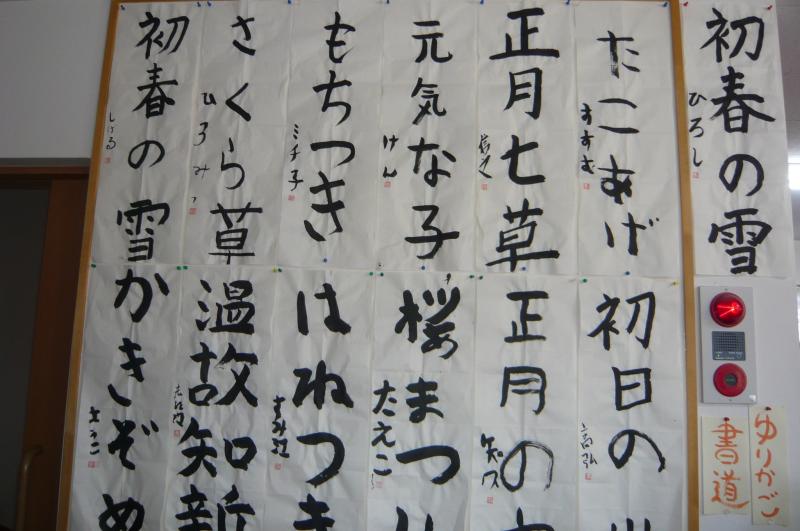 初春の雪
ひろし
たこあげ
すすむ
正月七草
元気な子
けん
もちつき
ミチ子
さくら草
ひろみ
初春の雪
しげる
初日の
正月の
桜まつり
たえこ
はねつき
すみ江
温故知新
かきぞめ
ゆりかご
書道